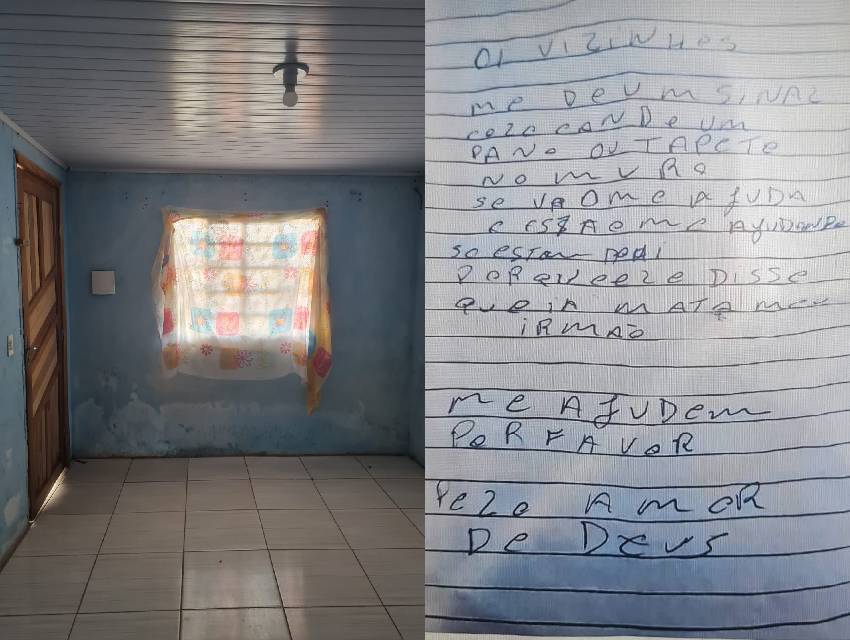 OI VIZINHOS
ME DEU UM SINAL
COLOCANDO UM
PANO OU TAPETE
NO MURO
SE VAO ME AJUDA
E ESTAO ME AJUDANDO
SO ESTOU
PORQUE ELE DISSE
QUE IA MATA MEU
IRMAO
ME AJUDEM
POR FAVOR
PELO AMOR
DE DEUS